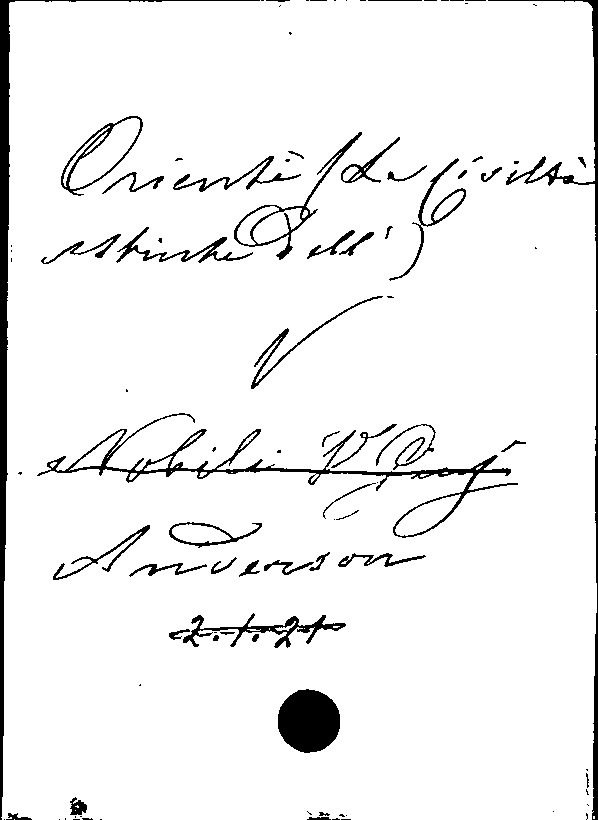 Oriente (La Civiltà
Antiche Dell')
V
Nobili
Anderson
2.1.21